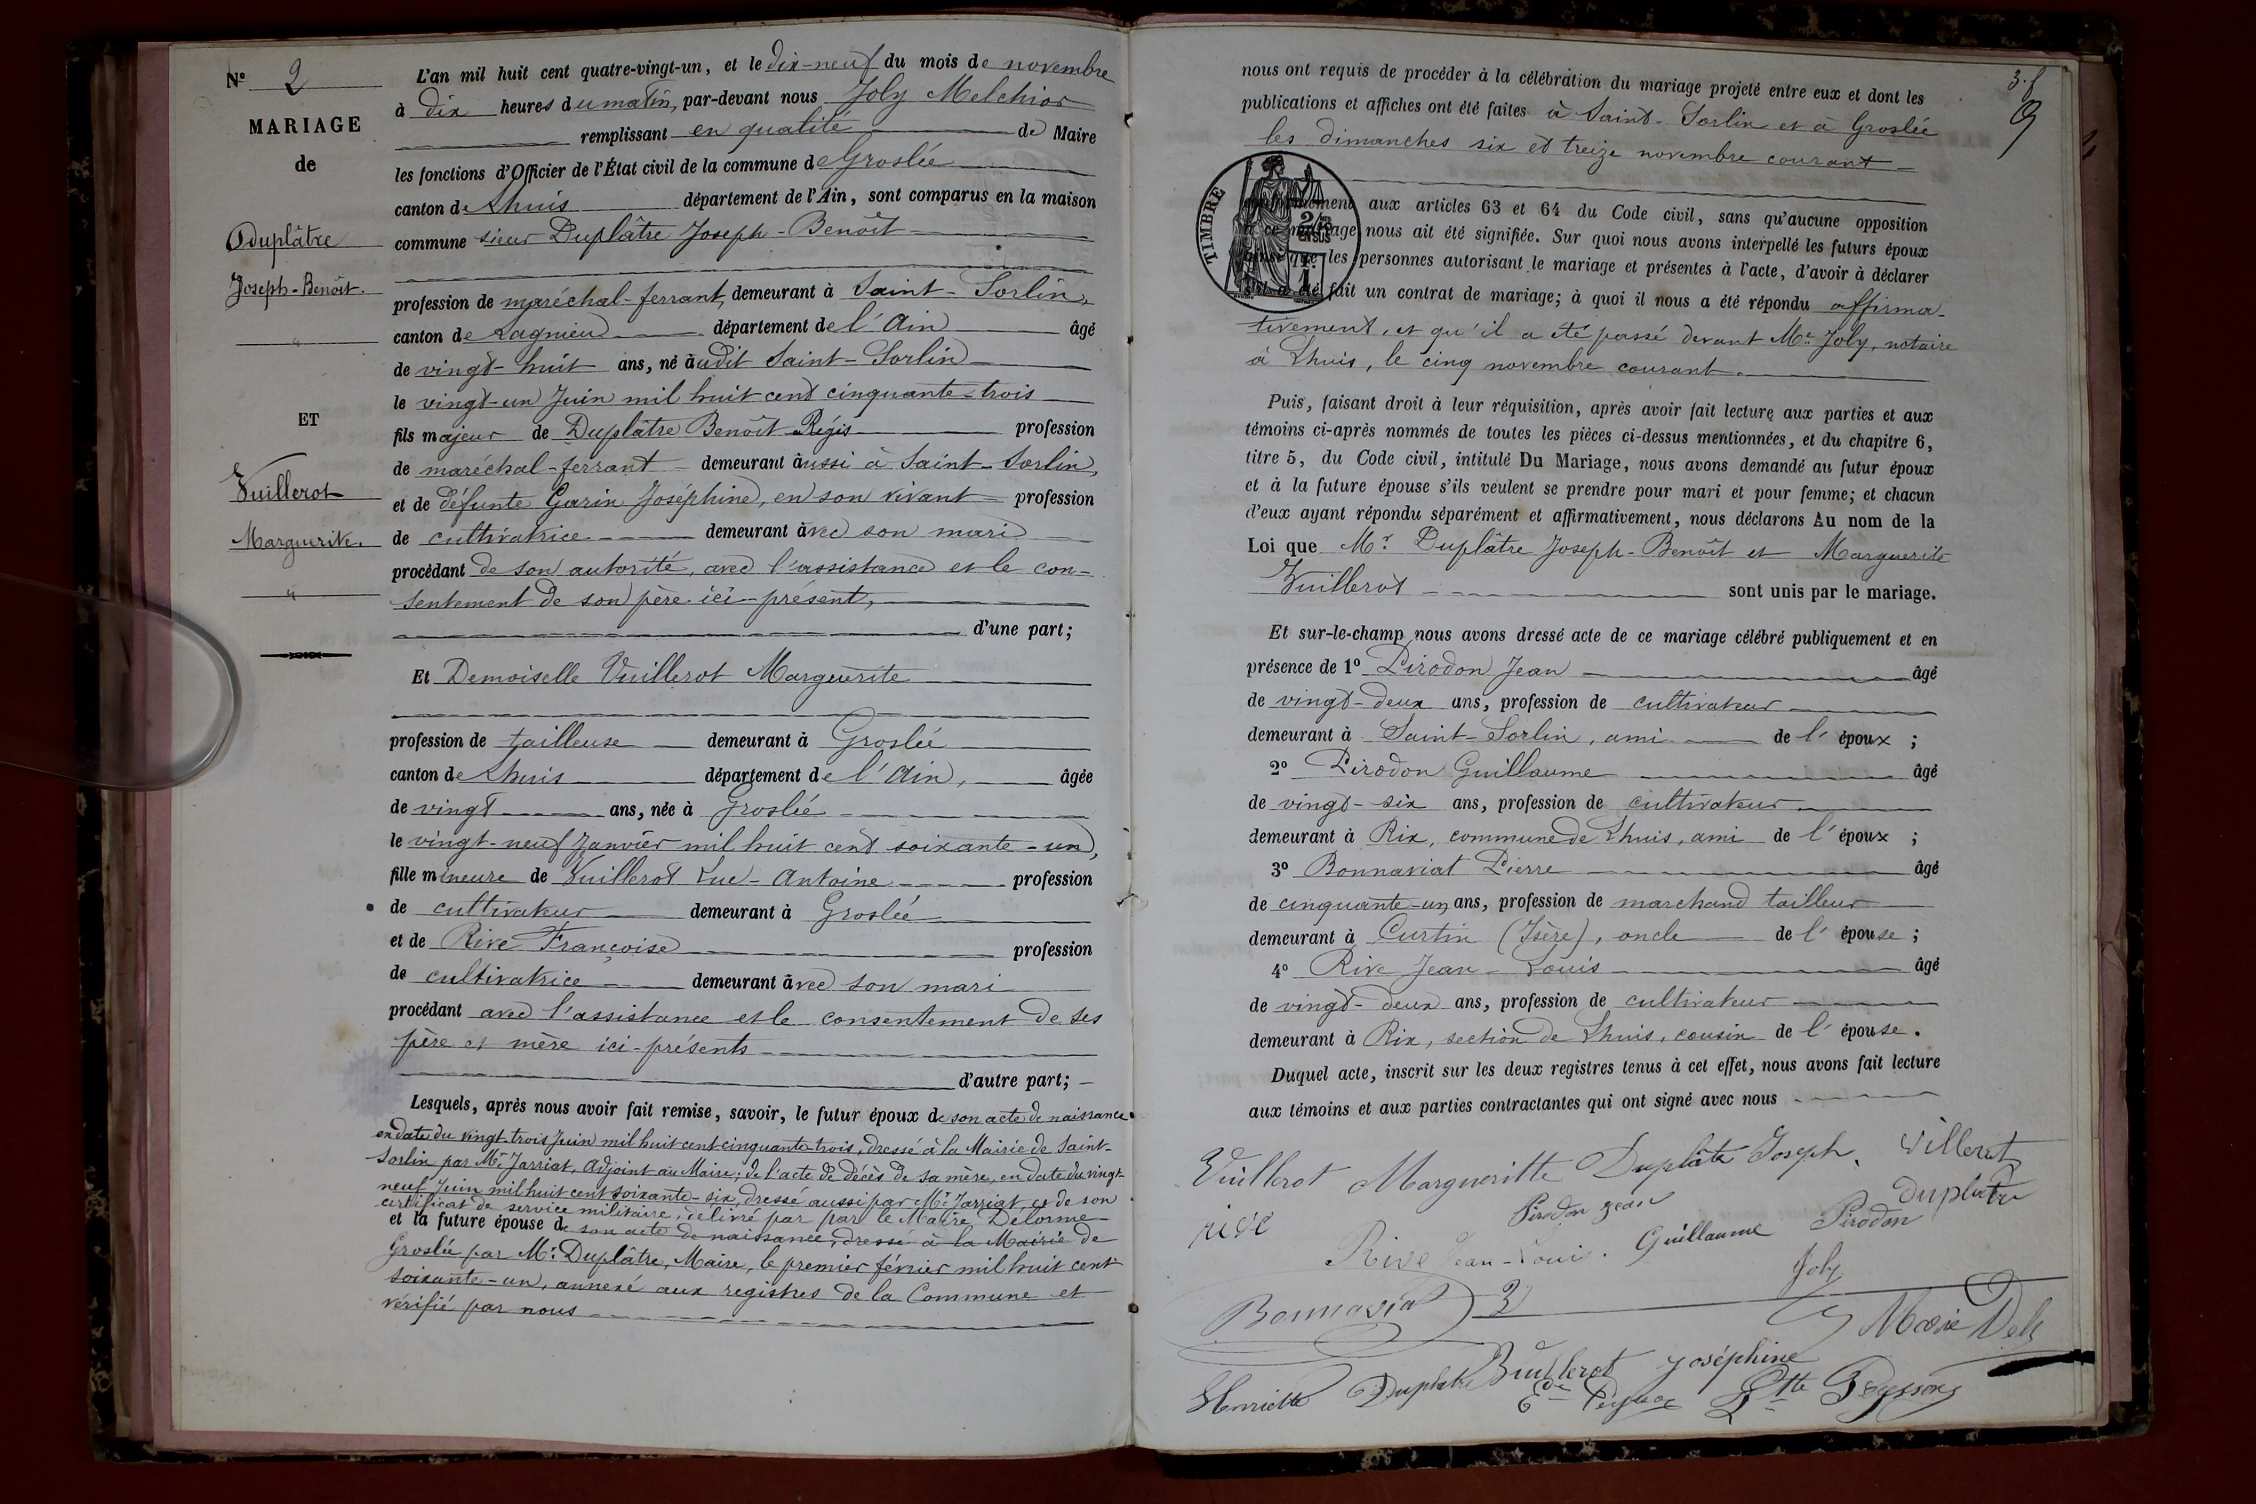 N° 2
MARIAGE
de
Duplâtre
Joseph-Benoît.
"
ET
Vuillerot
Marguerite.
"
L'an mil huit cent quatre-vingt-un, et le dix-neuf du mois de novembre
à dix heures du matin, par-devant nous Joly Melchior
remplissant en qualité de Maire
les fonctions d'Officier de l'État civil de la commune de Groslée
canton de Lhuis département de l'Ain, sont comparus en la maison
commune sieur Duplâtre Joseph-Benoît
profession de maréchal-ferrant, demeurant à Saint-Sorlin,
canton de Lagnieu département de l'Ain âgé
de vingt-huit ans, né audit Saint-Sorlin
le vingt-un Juin mil huit cent cinquante-trois
fils majeur de Duplâtre Benoît Régis profession
de maréchal-ferrant demeurant aussi à Saint-Sorlin,
et de défunte Garin Joséphine, en son vivant profession
de cultivatrice demeurant avec son mari
procédant de son autorité, avec l'assistance et le con-
sentement de son père ici-présent,
d'une part;
Et Demoiselle Vuillerot Marguerite
profession de tailleuse demeurant à Groslée
canton de Lhuis département de l'Ain, âgée
de vingt ans, née à Groslée
le vingt-neuf Janvier mil huit cent soixante-un,
fille mineure de Vuillerot Luc-Antoine profession
de cultivateur demeurant à Groslée
et de Rive Françoise profession
de cultivatrice demeurant avec son mari
procédant avec l'assistance et le consentement de ses
père et mère ici-présents
d'autre part;
Lesquels, après nous avoir fait remise, savoir, le futur époux de son acte de naissance
en date du vingt-trois Juin mil huit cent cinquante-trois, dressé à la Mairie de Saint-
Sorlin par Mr. Jarriat, adjoint au Maire; de l'acte de décès de sa mère, en date du vingt-
neuf Juin mil huit cent soixante-six, dressé aussi par Mr. Jarriat, et de son
certificat de service militaire, délivré par par le Maire Delorme
et la future épouse de son acte de naissance, dressé à la Mairie de
Groslée par Mr. Duplâtre, Maire, le premier février mil huit cent
soixante-un, annexé aux registres de la Commune et
vérifié par nous
3.f
9
nous ont requis de procéder à la célébration du mariage projeté entre eux et dont les
publications et affiches ont été faites à Saint-Sorlin et à Groslée
les dimanches six et treize novembre courant
TIMBRE
aux articles 63 et 64 du Code civil, sans qu'aucune opposition
à ce mariage nous ait été signifiée. Sur quoi nous avons interpellé les futurs époux
ainsi que les personnes autorisant le mariage et présentes à l'acte, d'avoir à déclarer
s'il a été fait un contrat de mariage; à quoi il nous a été répondu affirma-
tivement, et qu'il a été passé devant Me. Joly, notaire
à Lhuis, le cinq novembre courant.
Puis, faisant droit à leur réquisition, après avoir fait lecture aux parties et aux
témoins ci-après nommés de toutes les pièces ci-dessus mentionnées, et du chapitre 6,
titre 5, du Code civil, intitulé Du Mariage, nous avons demandé au futur époux
et à la future épouse s'ils veulent se prendre pour mari et pour femme; et chacun
d'eux ayant répondu séparément et affirmativement, nous déclarons Au nom de la
Loi que Mr. Duplâtre Joseph-Benoît et Marguerite
Vuillerot sont unis par le mariage.
Et sur-le-champ nous avons dressé acte de ce mariage célébré publiquement et en
présence de 1° Pirodon Jean âgé
de vingt-deux ans, profession de cultivateur
demeurant à Saint-Sorlin, ami de l'époux ;
2° Pirodon Guillaume âgé
de vingt-six ans, profession de cultivateur
demeurant à Rix, commune de Lhuis, ami de l'époux ;
3° Bonnaviat Pierre âgé
de cinquante-un ans, profession de marchand tailleur
demeurant à Curtin (Isère), oncle de l'épouse ;
4° Rive Jean-Louis âgé
de vingt-deux ans, profession de cultivateur
demeurant à Rix, section de Lhuis, cousin de l'épouse.
Duquel acte, inscrit sur les deux registres tenus à cet effet, nous avons fait lecture
aux témoins et aux parties contractantes qui ont signé avec nous
Vuillerot Margueritte Duplâtre Joseph. Villerot
Pirodon jean Duplatre
rive
Rive Jean-Louis. Guillaume Pirodon
Joly
Bonnaviat
Marie
Henriette Duplatre Vuillerot Joséphine